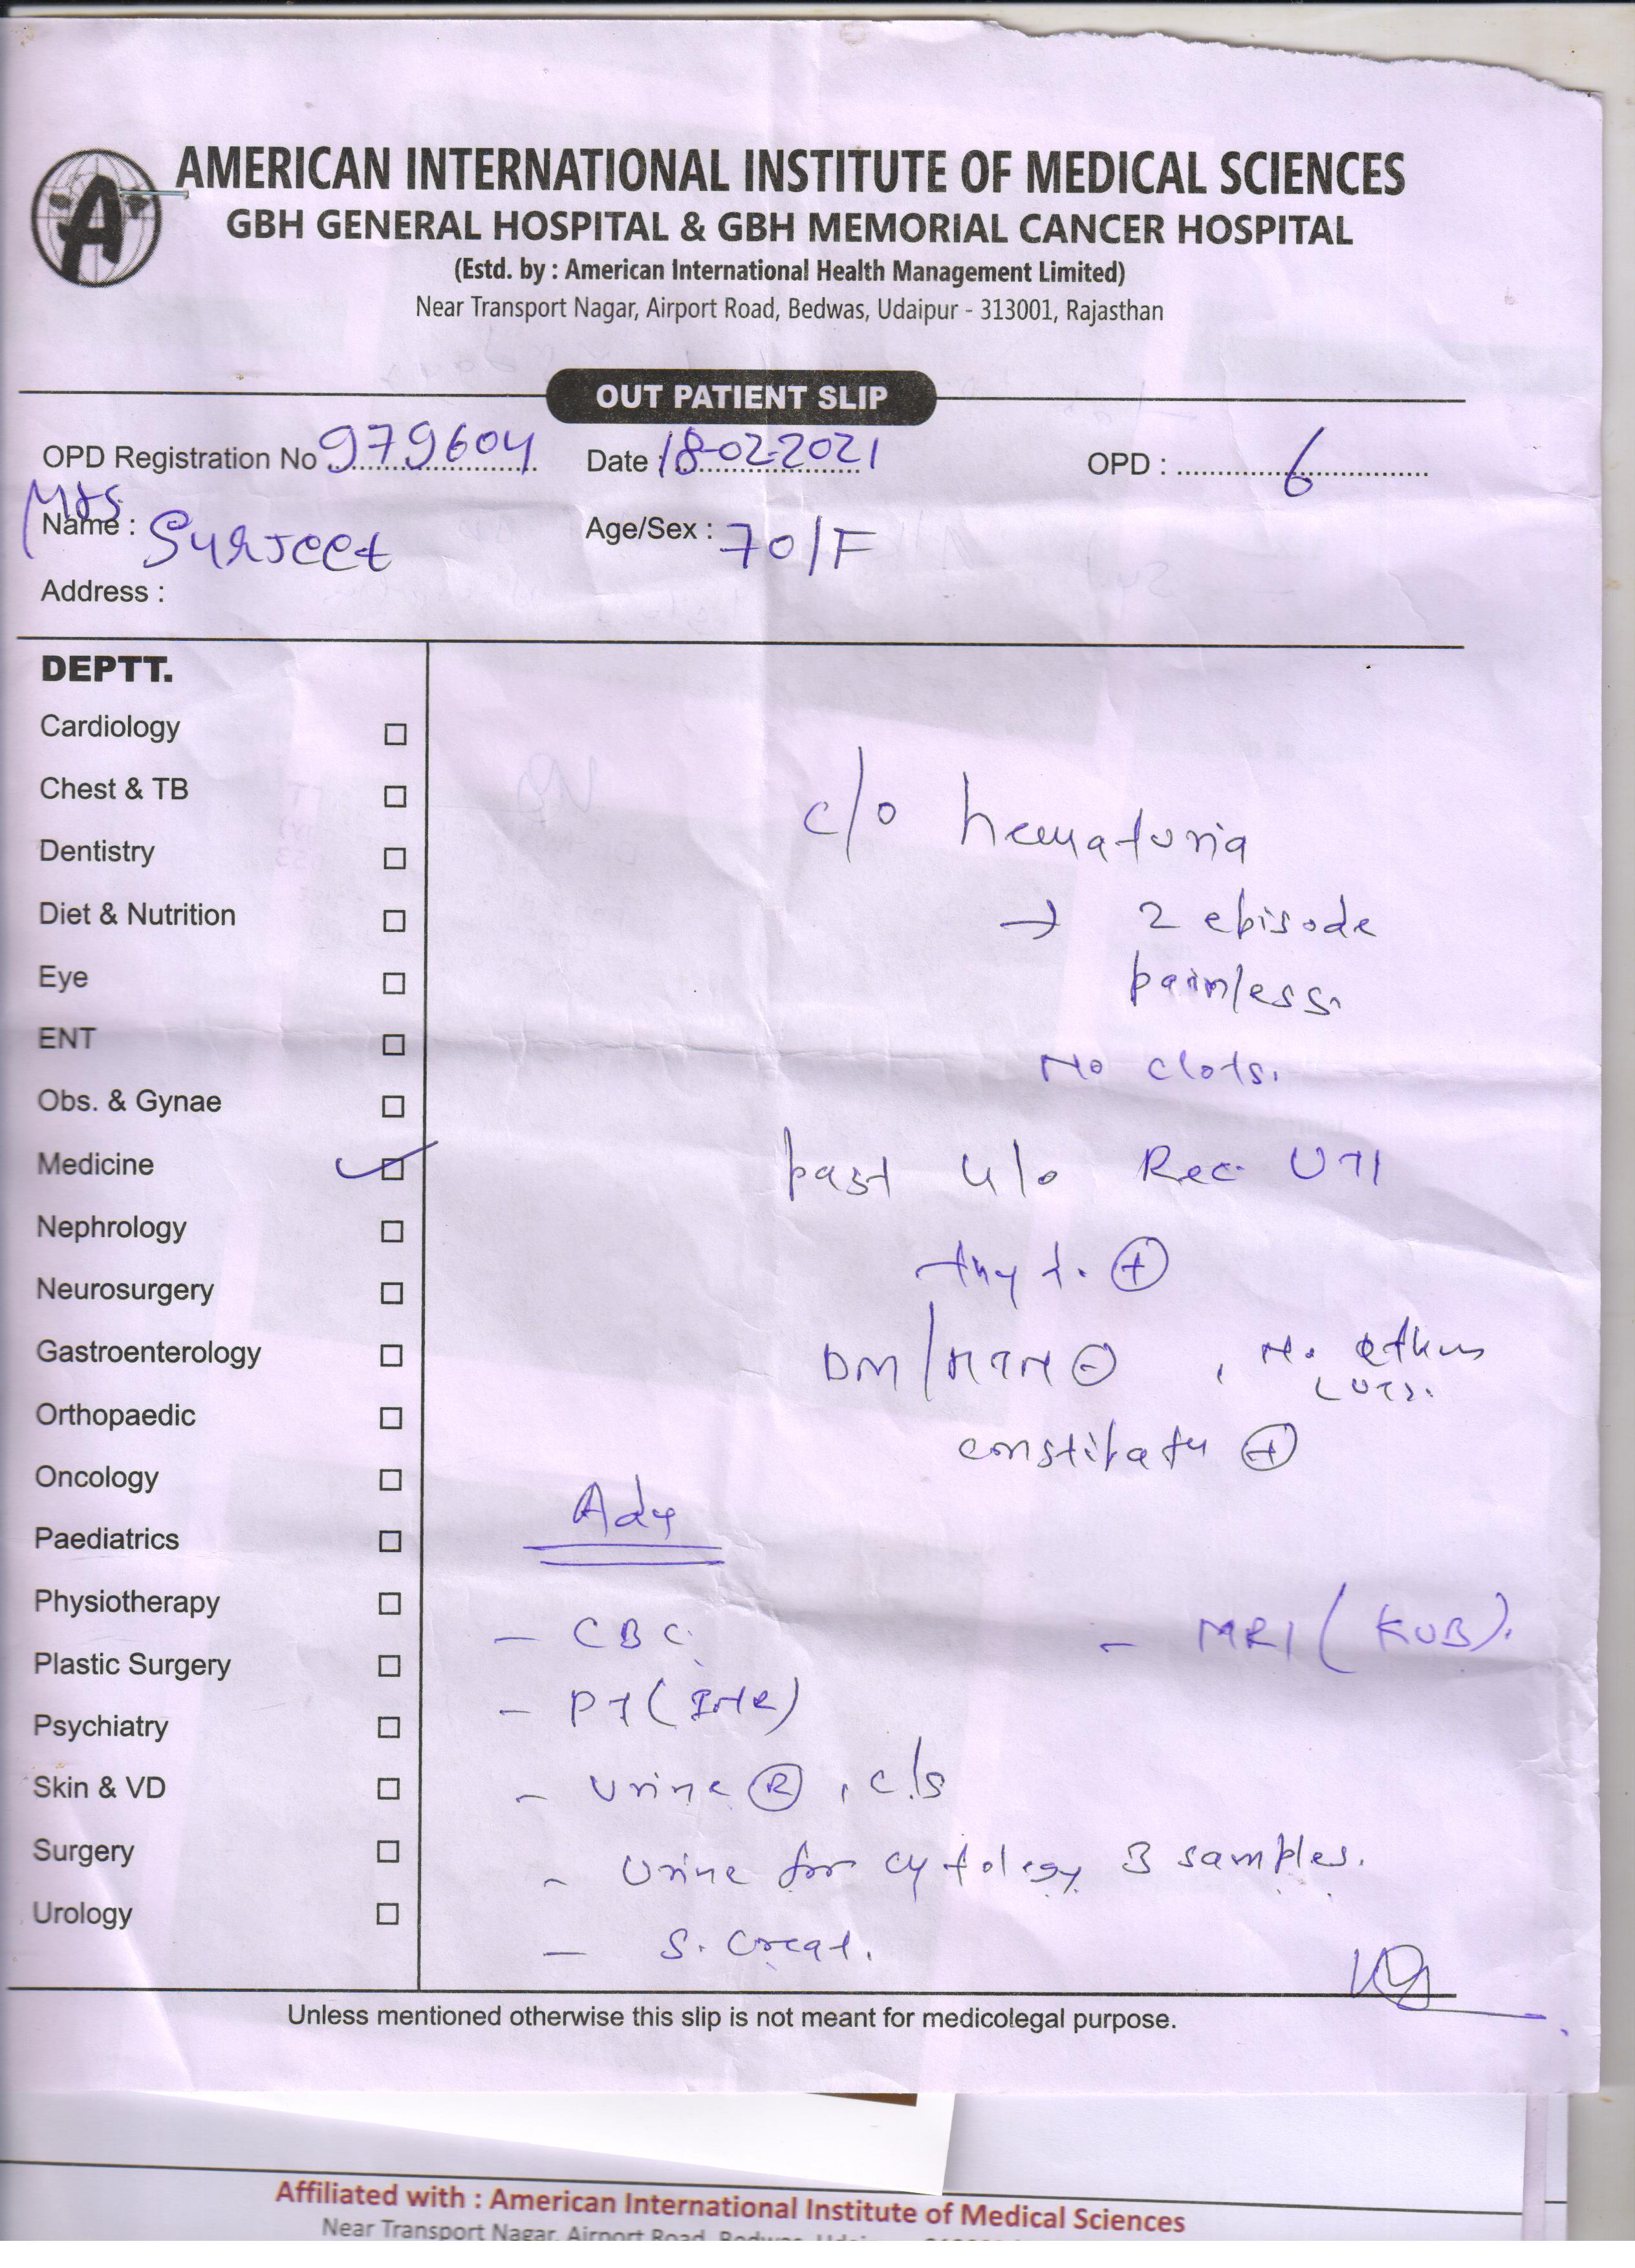 AMERICAN INTERNATIONAL INSTITUTE OF MEDICAL SCIENCES
GBH GENERAL HOSPITAL & GBH MEMORIAL CANCER HOSPITAL
(Estd. by : American International Health Management Limited)
Near Transport Nagar, Airport Road, Bedwas, Udaipur - 313001, Rajasthan
OUT PATIENT SLIP
OPD Registration No 979604 Date : 18-02-2021 OPD : 6
Mrs.
Name : Surjeet Age/Sex : 70/F
Address :
DEPTT.
Cardiology
Chest & TB
Dentistry
Diet & Nutrition
Eye
ENT
Obs. & Gynae
Medicine
Nephrology
Neurosurgery
Gastroenterology
Orthopaedic
Oncology
Paediatrics
Physiotherapy
Plastic Surgery
Psychiatry
Skin & VD
Surgery
Urology
c/o hematuria
→ 2 episode
painless.
No clots.
past h/o Rec. UTI
⊕
DM/HTN ⊖ , No other
LUTS.
⊕
Adv
- CBC
- MRI (KUB).
- PT (INR)
- Urine Ⓡ, c/s
- Urine for cytology 3 samples.
- S. Creat.
Unless mentioned otherwise this slip is not meant for medicolegal purpose.
Affiliated with : American International Institute of Medical Sciences
Near Transport Nagar, Airport Road, Bedwas,